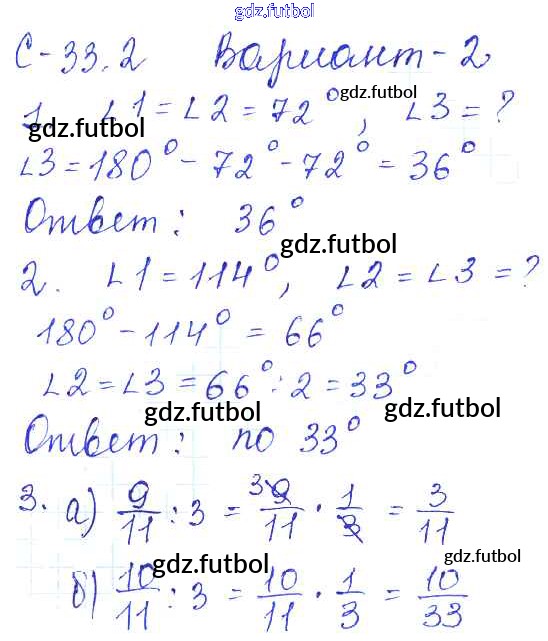 gdz.futbol
С-33.2 Вариант-2
1. ∠1 = ∠2 = 72°, ∠3 = ? gdz.futbol
gdz.futbol
∠3 = 180° - 72° - 72° = 36°
Ответ: 36°
gdz.futbol
2. ∠1 = 114°, ∠2 = ∠3 = ?
180° - 114° = 66°
∠2 = ∠3 = 66° : 2 = 33°
gdz.futbol gdz.futbol
Ответ: по 33°
3. а) 9/11 : 3 = 3 9/11 · 1/3 = 3/11
gdz.futbol gdz.futbol
б) 10/11 : 3 = 10/11 · 1/3 = 10/33